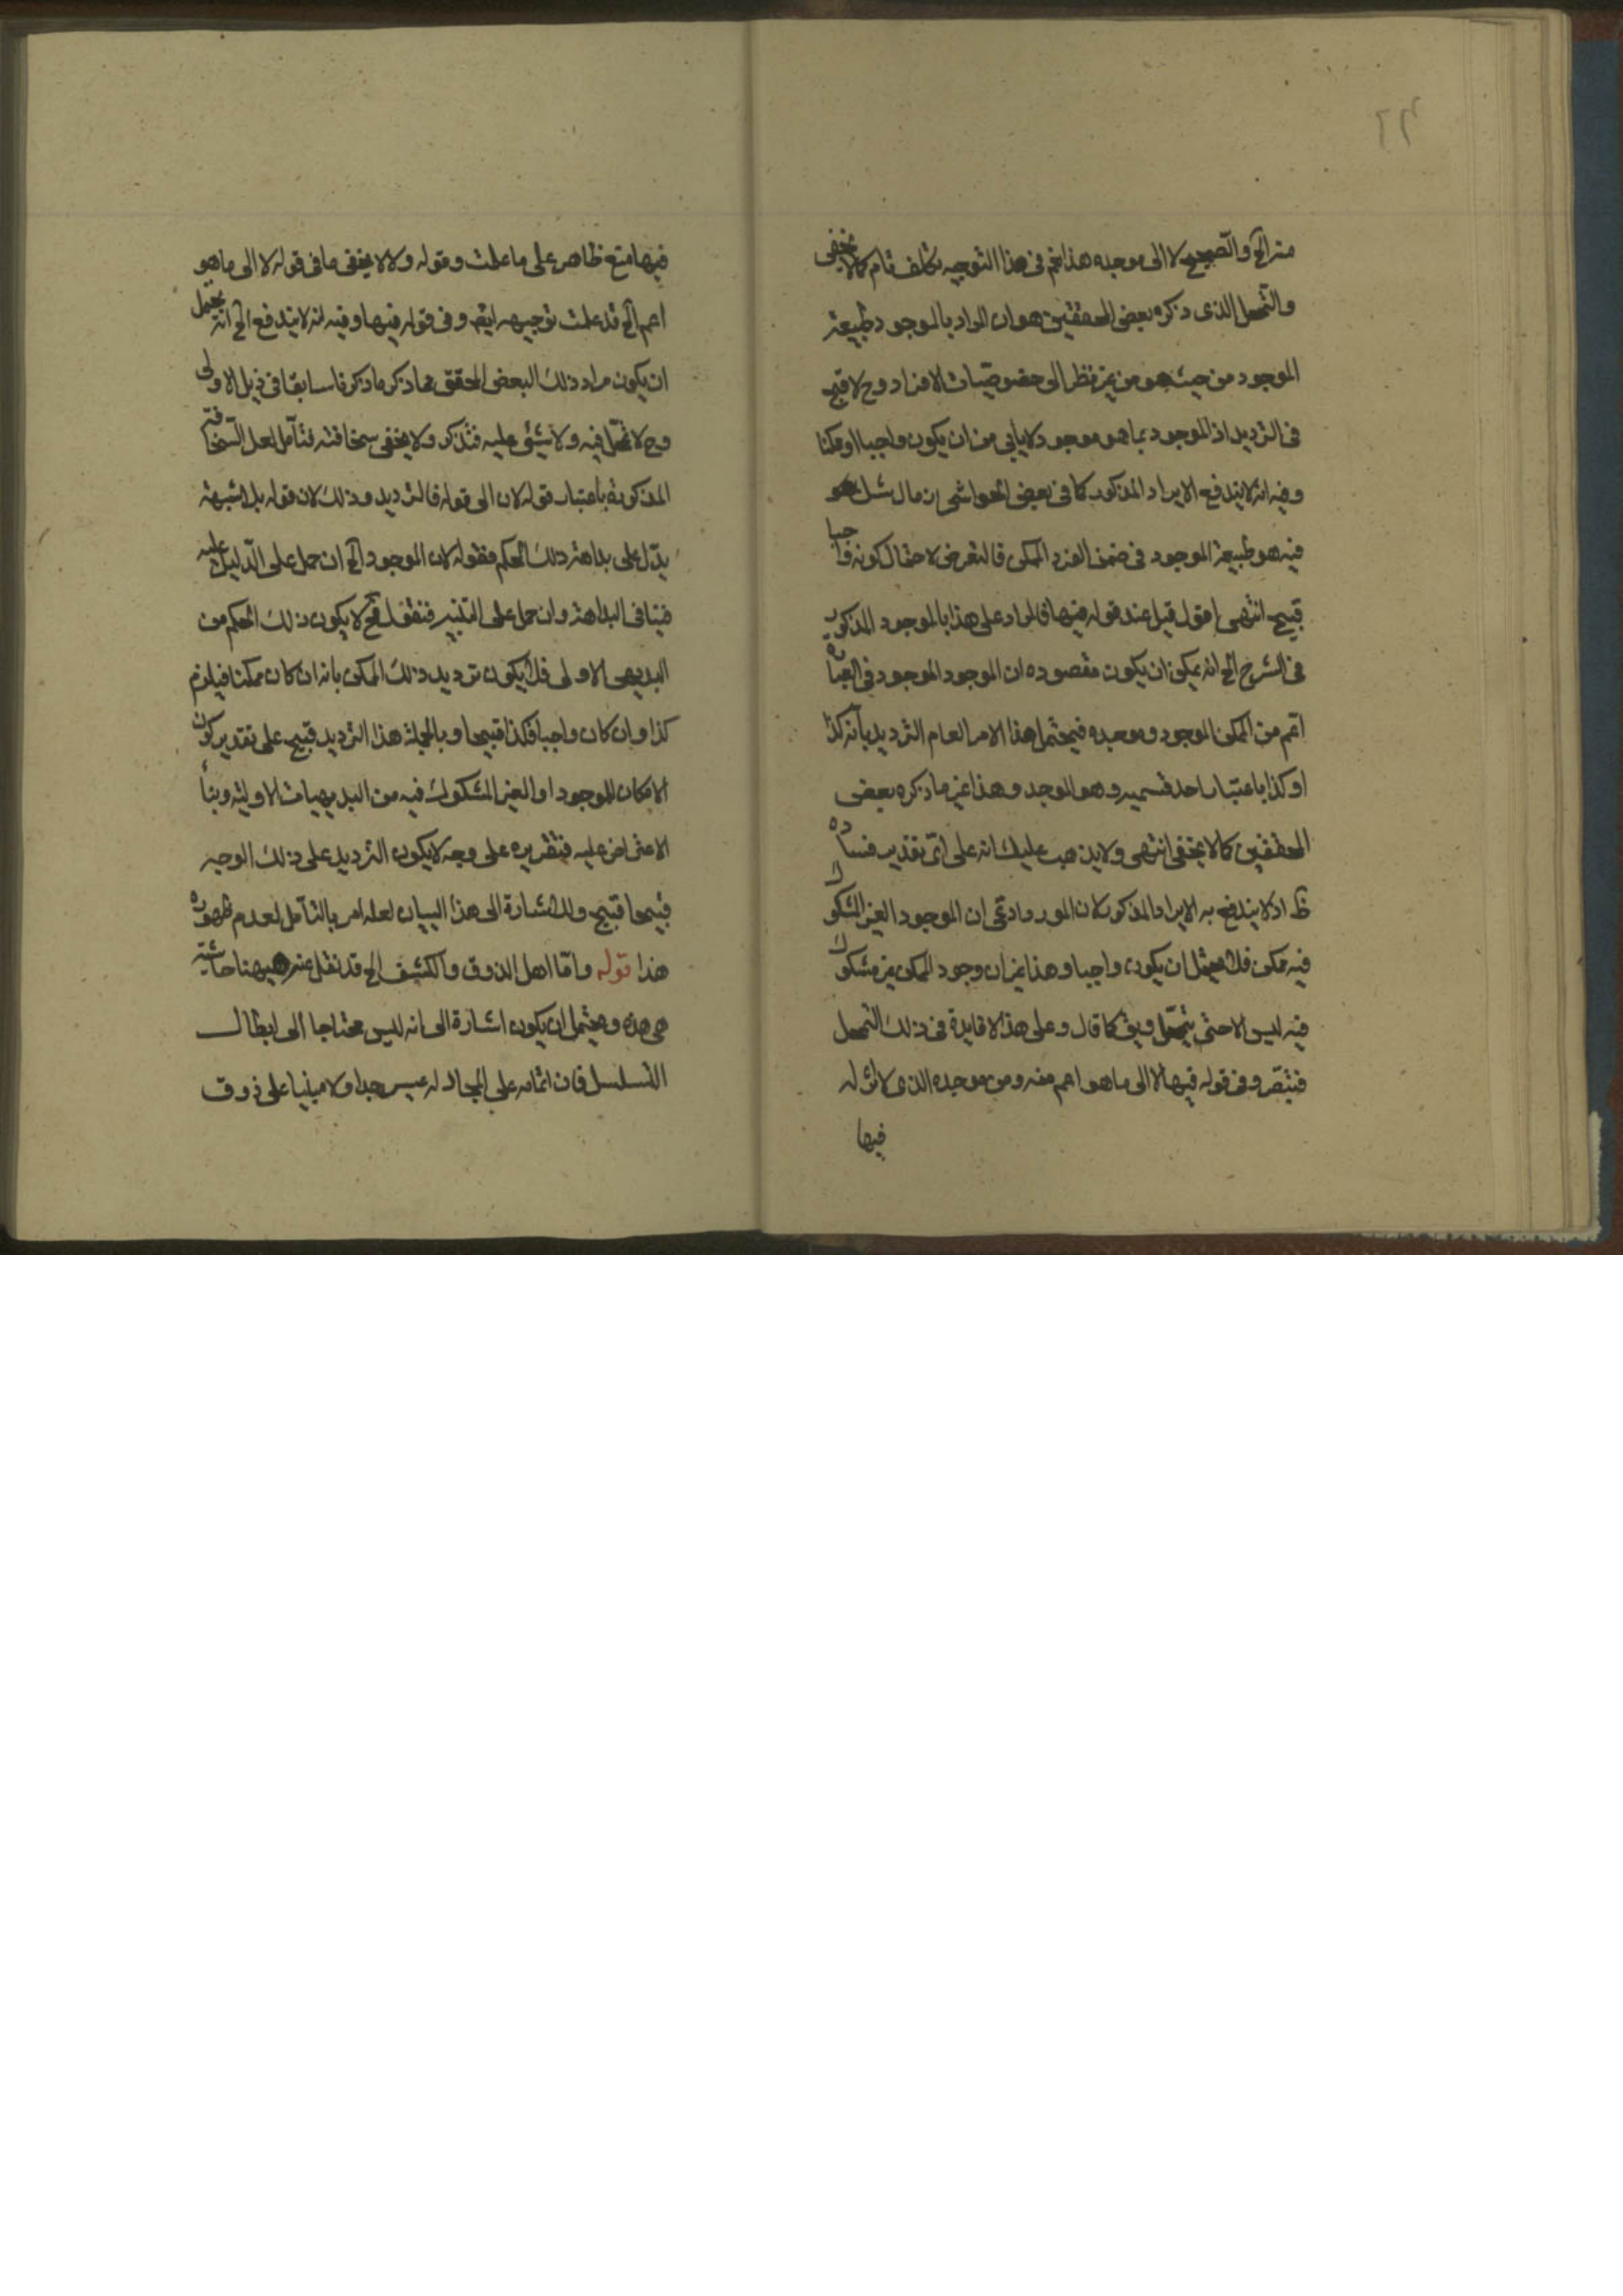 ٦٦
منه الخ والصحيح لا الى موجده هذا ثم فى هذا التوجيه تكلف تام كما لا يخفى
والتمحل الذى ذكره بعض المحققين هو ان المراد بالموجود طبيعة
الموجود من حيث هو من غير نظر الى خصوصيات الافراد وح لا قبح
فى الترديد اذ الموجود بما هو موجود لا يابى من ان يكون واجبا او ممكنا
وفيه انه لا يندفع الايراد المذكور كما فى بعض الحواشى ان مال
فيه هو طبيعة الموجود فى ضمن الفرد الممكن فالتعرض لاحتمال كونه واجبا
قبيح انتهى اقول قيل عند قوله فيها فالمراد على هذا بالموجود المذكور
فى الشرح الخ انه يمكن ان يكون مقصوده ان الموجود الموجود فى العبارة
اعم من الممكن الموجود وموجده فيحتمل هذا الامر العام الترديد بانه كذا
او كذا باعتبار احد قسميه وهو الموجد وهذا غير ما ذكره بعض
المحققين كما لا يخفى انتهى ولا يذهب عليك انه على اى تقدير فساده
ظ اذ لا يندفع به الايراد المذكور لان المورد ادعى ان الموجود الغير المشكوك
فيه ممكن فلا يحتمل ان يكون واجبا وهذا غير ان وجود الممكن غير مشكوك
فيه ليس الا حتى يتمحل ويق كما قال وعلى هذا لا فايدة فى ذلك التمحل
فتبصر وفى قوله فيها لا الى ما هو اعم منه ومن موجده الذى لا اثر له
فيها
فيها متع ظاهر على ما علمت وقوله ولا لا يخفى ما فى قوله لا الى ما هو
اعم الخ قد علمت توجيهه ايضا وفى قوله فيها وفيه انه لا يندفع الخ انه يحتمل
ان يكون مراد ذلك البعض المحقق مما ذكر ما ذكرنا سابقا فى ذيل الاولى
وح لا تمحل فيه ولا شئ عليه فتذكر ولا يخفى سخافته فتأمل لعل السخافة
المذكورة باعتبار قوله لان الى قوله فالترديد وذلك لان قوله بل اشبهة
يدل على بداهة ذلك الحكم فقوله لان الموجود الخ ان حمل على الدليل عليه
فينافى البداهة وان حمل على التنبيه فنقول فح لا يكون ذلك الحكم من
البديهى الاولى فلا يكون ترديد ذلك الممكن بانه ان كان ممكنا فيلزم
كذا وان كان واجبا فكذا قبيحا وبالجملة هذا الترديد قبيح على تقدير كون
الامكان للموجود او الغير المشكوك فيه من البديهيات الاولية وبناء
الاعتراض عليه فتقريره على وجه لا يكون الترديد على ذلك الوجه
قبيحا قبيح وللاشارة الى هذا البيان لعله امر بالتأمل لعدم ظهوره
هذا قوله واما اهل الذوق والكشف الخ قد نقل عنه هيهنا حاشية
هى هذه ويحتمل ان يكون اشارة الى انه ليس محتاجا الى ابطال
التسلسل فان اتمامه على المجادلة عسير جدا ولا مبنيا على ذوق